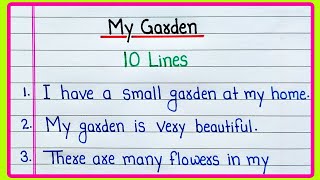 My Garden
10 Lines
1. I have a small garden at my home.
2. My garden is very beautiful.
3. There are many flowers in my